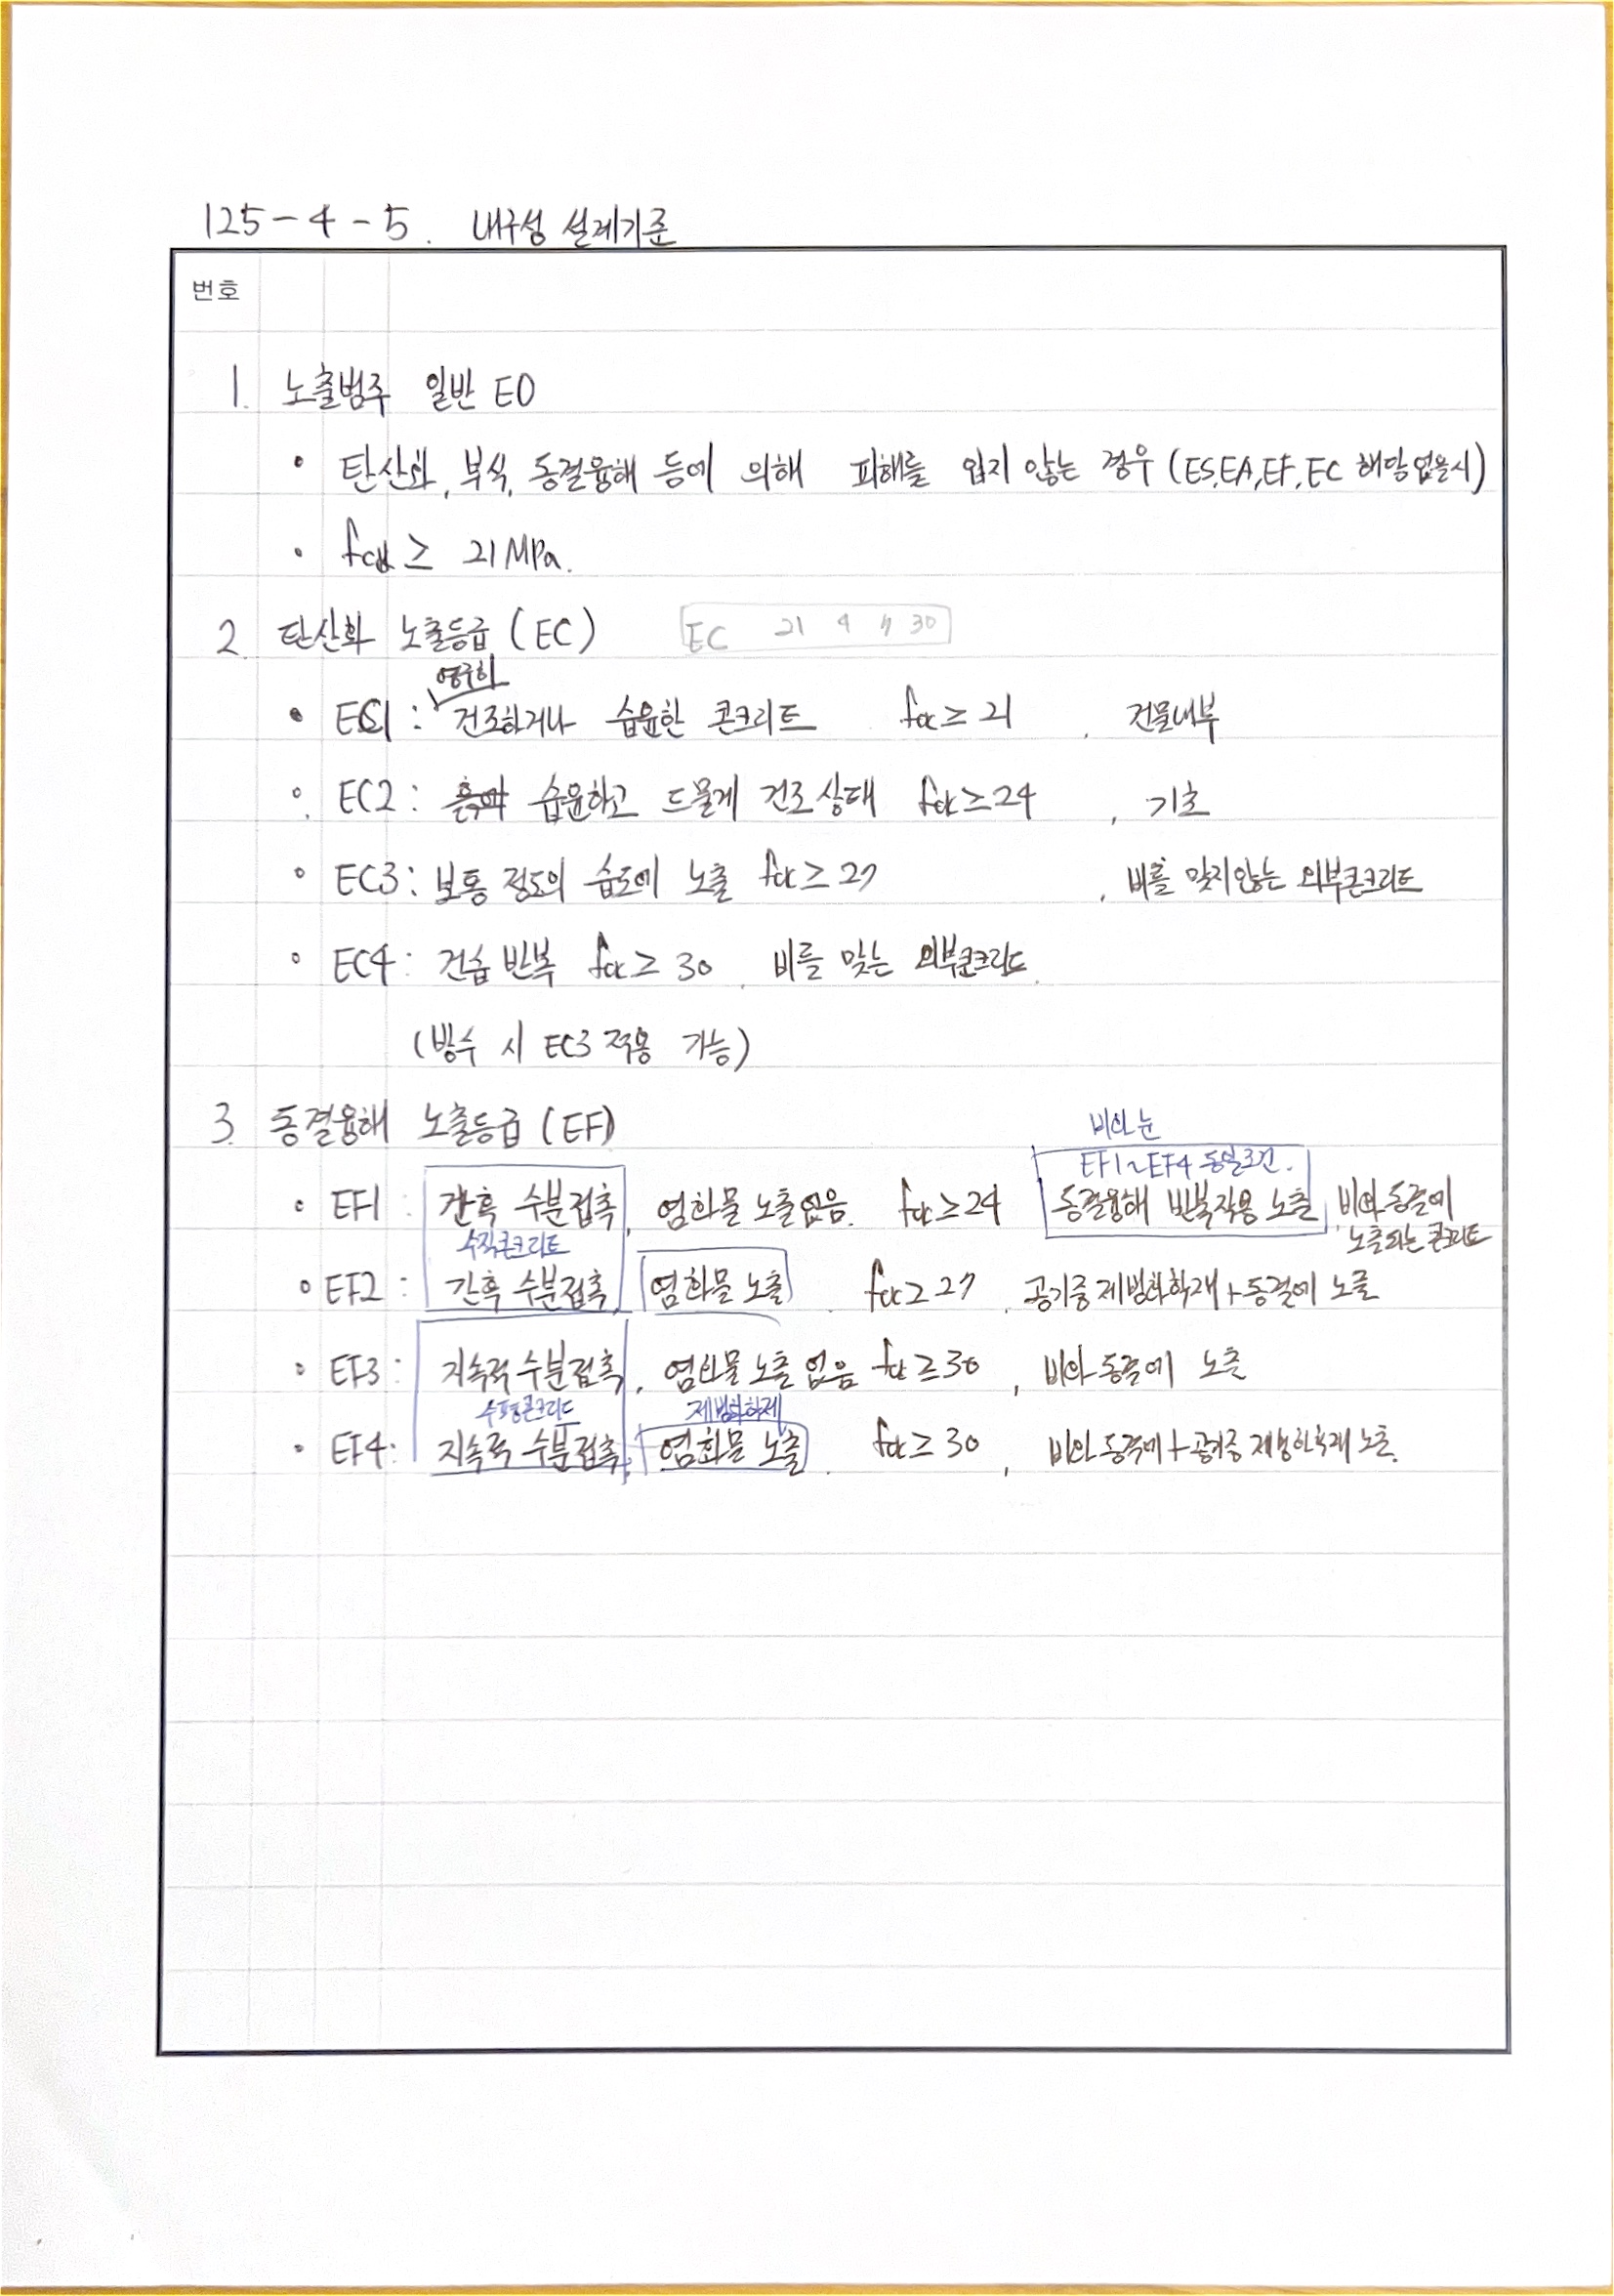 125-4-5. 내구성 설계기준
번호
1. 노출범주 일반 E0
• 탄산화, 부식, 동결융해 등에 의해 피해를 입지 않는 경우 (ES,EA,EF,EC 해당없을시)
• fck ≥ 21MPa.
2. 탄산화 노출등급 (EC)
EC 21 4 7 30
영구히
• EC1 : 건조하거나 습윤한 콘크리트 fck ≥ 21 , 건물내부
• EC2 : 습윤하고 드물게 건조상태 fck ≥ 24 , 기초
• EC3 : 보통 정도의 습도에 노출 fck ≥ 27 , 비를 맞지않는 외부콘크리트
• EC4 : 건습 반복 fck ≥ 30 , 비를 맞는 외부콘크리트.
(방수 시 EC3 적용 가능)
3. 동결융해 노출등급 (EF)
비와 눈
EF1~EF4 동일조건.
• EF1 : 간혹 수분접촉, 염화물 노출없음. fck ≥ 24 동결융해 반복작용 노출, 비와 동결에
노출되는 콘크리트
수직콘크리트
• EF2 : 간혹 수분접촉, 염화물 노출. fck ≥ 27 , 공기중 제빙화학재+동결에 노출
• EF3 : 지속적 수분접촉, 염화물 노출 없음 fck ≥ 30 , 비와 동결에 노출
수평콘크리트 제빙화학제
• EF4 : 지속적 수분접촉, 염화물 노출. fck ≥ 30 , 비와 동결에+공기중 제빙화학재 노출.